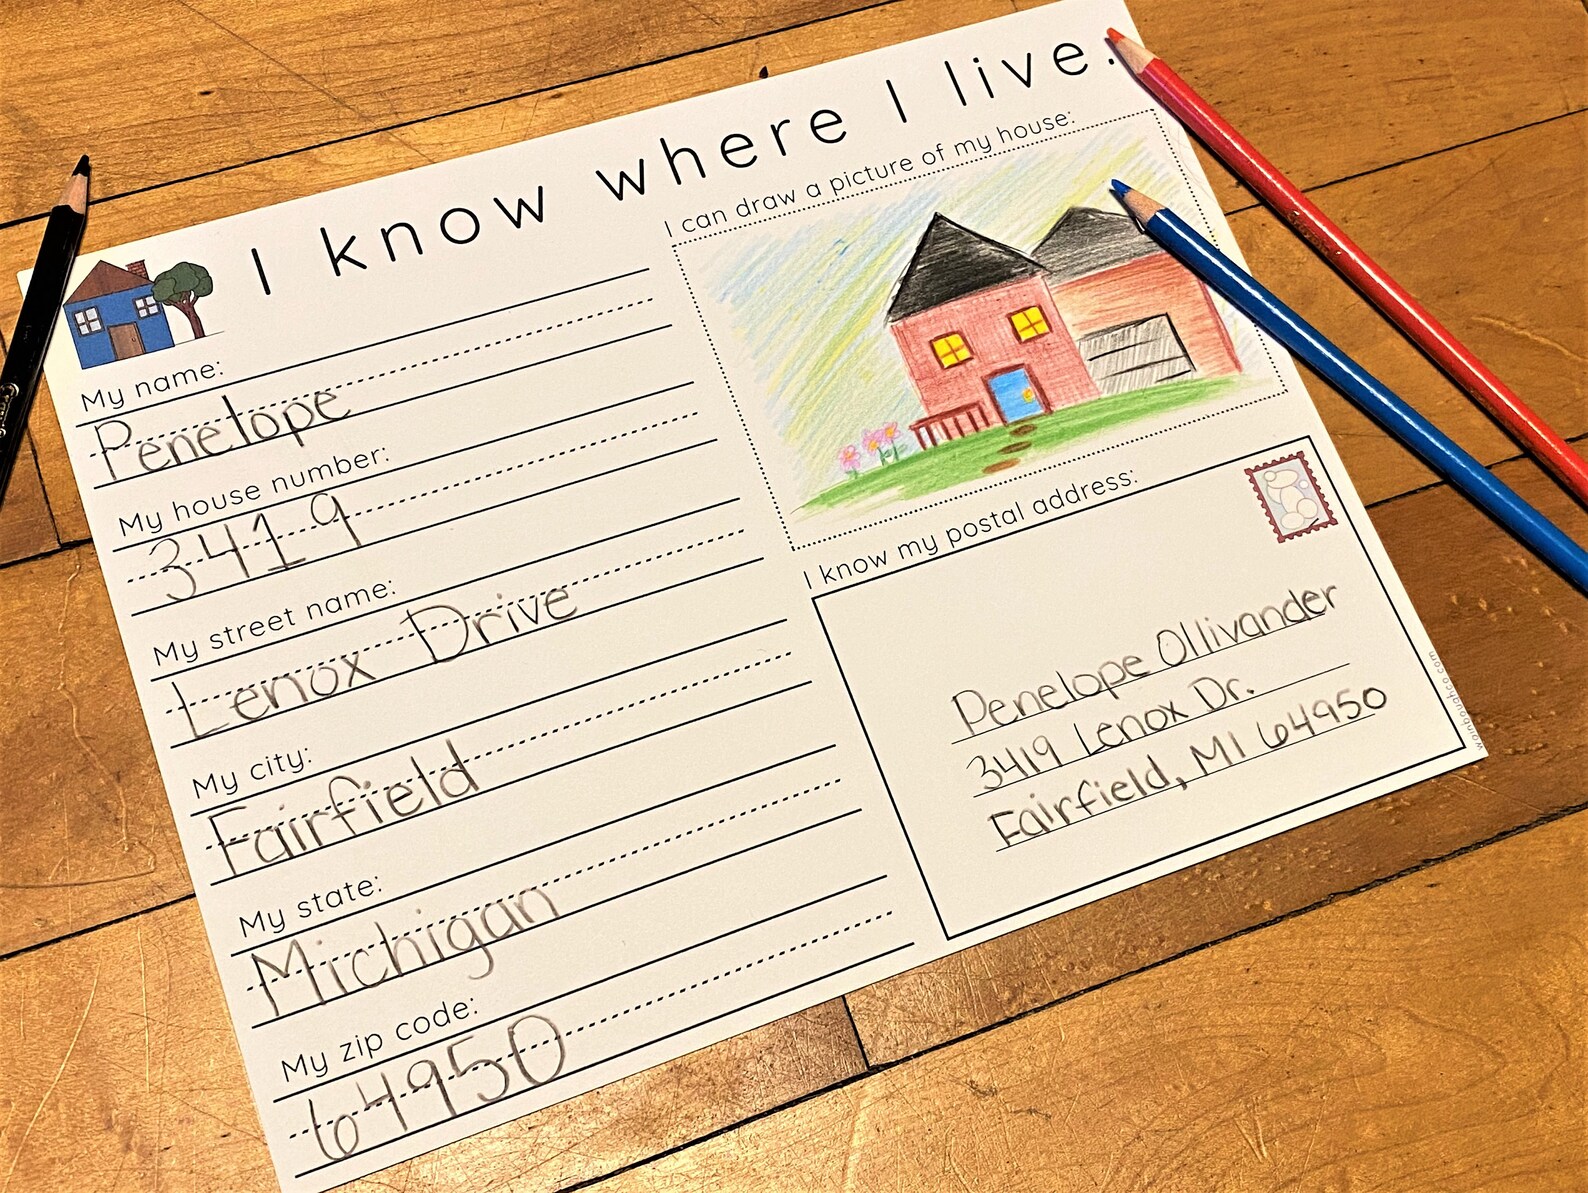 I know where I live.
My name:
Penelope
My house number:
3419
My street name:
Lenox Drive
My city:
Fairfield
My state:
Michigan
My zip code:
64950
I can draw a picture of my house:
I know my postal address:
Penelope Ollivander
3419 Lenox Dr.
Fairfield, MI 64950